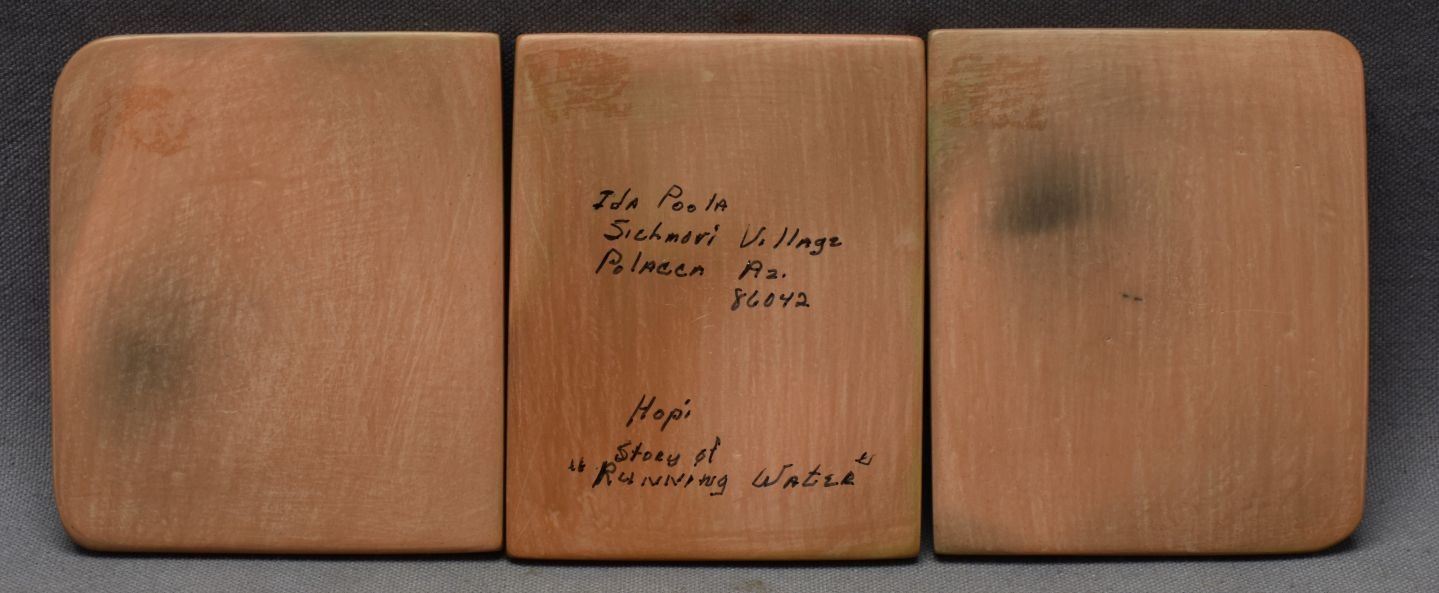 Ida Poola
Sichmovi Village
Polacca Az.
86042
Hopi
Story of
"Running Water"